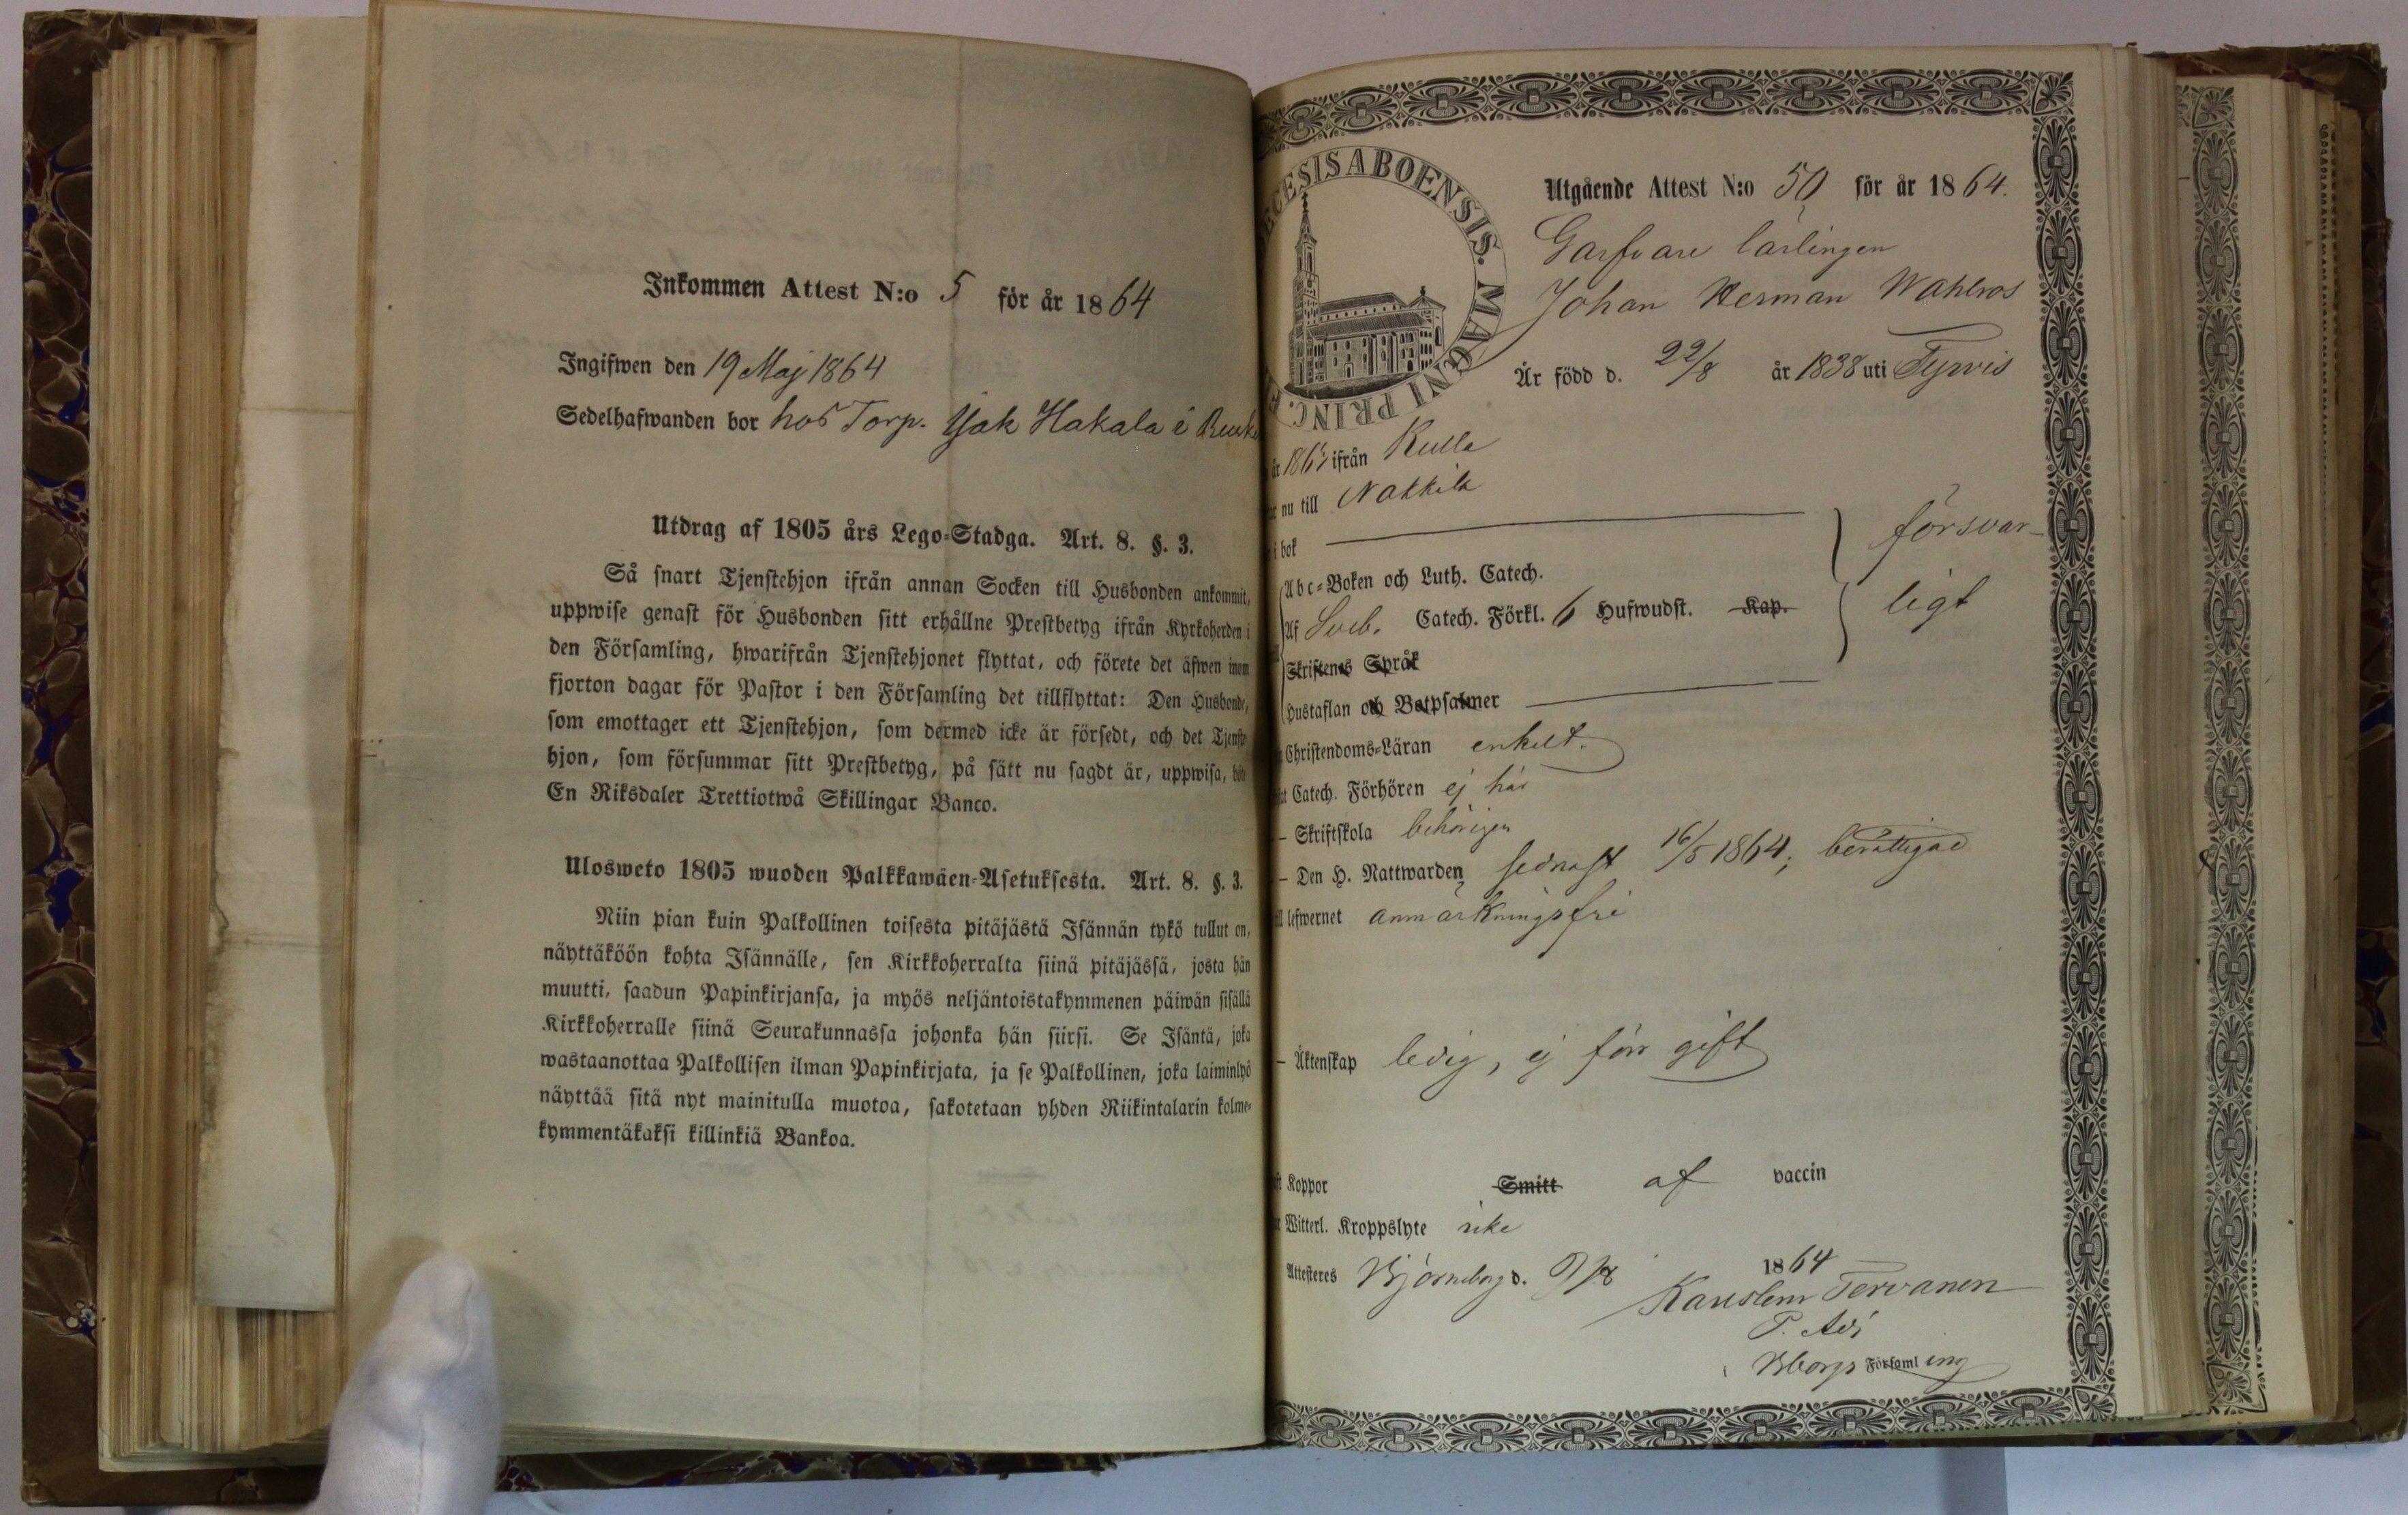 Inkommen Attest N:o 5 för år 1864
Ingifwen den 19 Maj 1864
Sedelhafwanden bor hos Torp. Isak Hakala i
Utdrag af 1805 års Lego-Stadga. Art. 8. §. 3.
Så snart Tjenstehjon ifrån annan Socken till Husbonden ankommit,
uppwise genast för Husbonden sitt erhållne Prestbetyg ifrån Kyrkoherden i
den Församling, hwarifrån Tjenstehjonet flyttat, och förete det äfwen inom
fjorton dagar för Pastor i den Församling det tillflyttat: Den Husbonde,
som emottager ett Tjenstehjon, som dermed icke är försedt, och det Tjenste-
hjon, som försummar sitt Prestbetyg, på sätt nu sagdt är, uppwisa, böte
En Riksdaler Trettiotwå Skillingar Banco.
Ulosweto 1805 wuoden Palkkawäen-Asetuksesta. Art. 8. §. 3.
Niin pian kuin Palkollinen toisesta pitäjästä Isännän tykö tullut on,
näyttäköön kohta Isännälle, sen Kirkkoherralta siinä pitäjässä, josta hän
muutti, saadun Papinkirjansa, ja myös neljäntoistakymmenen päiwän sisällä
Kirkkoherralle siinä Seurakunnassa johonka hän siirsi. Se Isäntä, joka
wastaanottaa Palkollisen ilman Papinkirjata, ja se Palkollinen, joka laiminlyö
näyttää sitä nyt mainitulla muotoa, sakotetaan yhden Riikintalarin kolme-
kymmentäkaksi killinkiä Bankoa.
CESIS ABOENSIS. MAGNI PRINC.
Utgående Attest N:o 50 för år 1864.
Garfvare lärlingen
Johan Herman Wahlros
Är född d. 22/8 år 1838 uti Tyrvis
ifrån Kulla
nu till Nakkila
i bok
försvar-
ligt
Abc-Boken och Luth. Catech.
Af Sveb. Catech. Förkl. 6 Hufwudst. Kap.
Skriftenes Språk
Hustaflan och Botpsalmer
Christendoms-Läran enkelt.
Catech. Förhören ej här
– Skriftskola behörigen
– Den H. Nattwarden sednast 16/5 1864; berättigad
lefwernet anmärkningsfri
– Äktenskap ledig, ej förr gift
Koppor Smitt af vaccin
Witterl. Kroppslyte icke
Attesteres Björneborg d. 1864
Tervanen
P. Adj
i Bborgs Församling